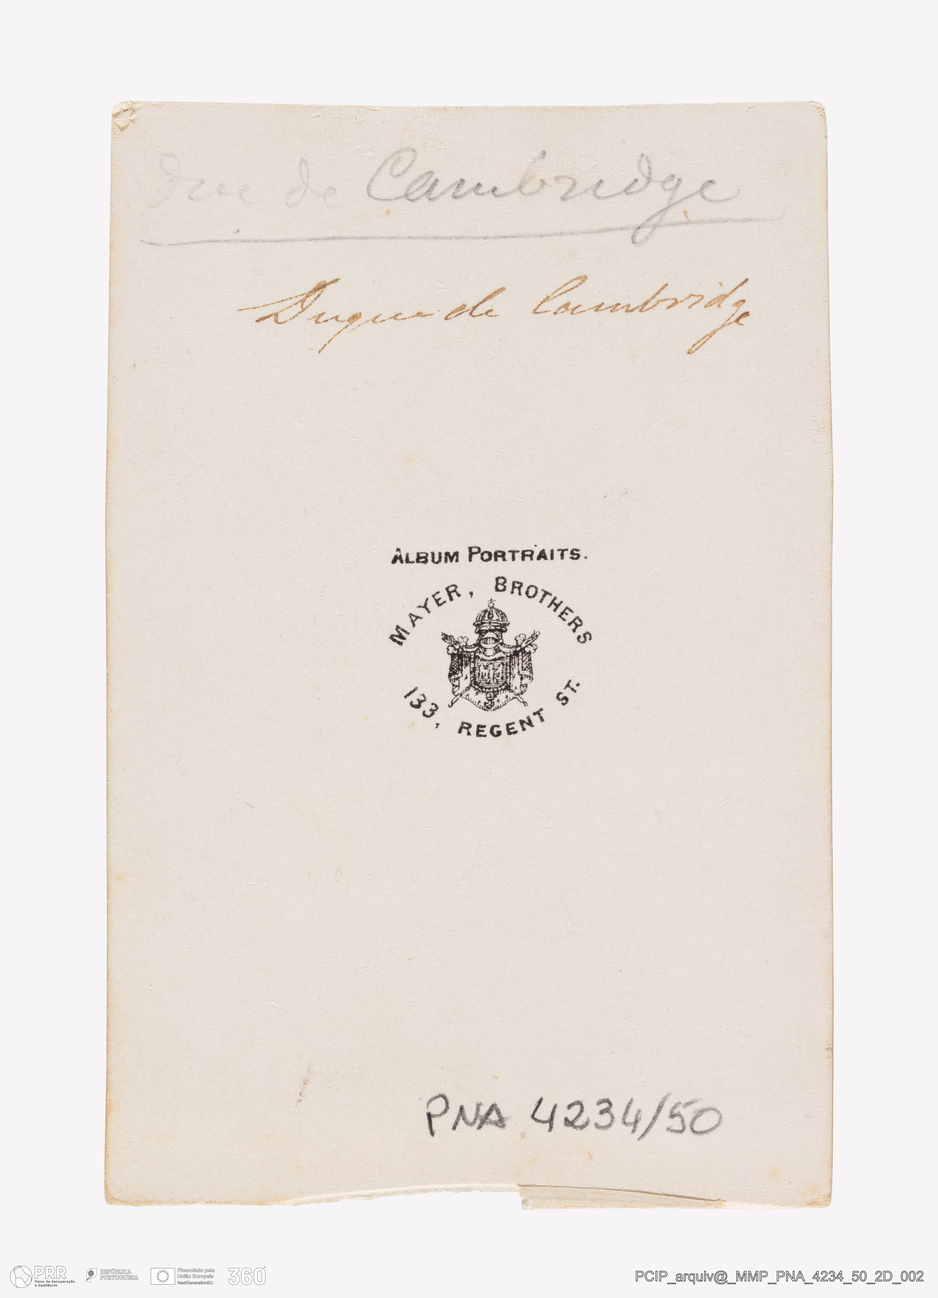 duc de Cambridge
Duque de Cambridge
ALBUM PORTRAITS.
MAYER, BROTHERS
133, REGENT ST.
PNA 4234/50
PRR
Plano de Recuperação
e Resiliência
REPÚBLICA
PORTUGUESA
Financiado pela
União Europeia
NextGenerationEU
360°
PCIP_arquiv@_MMP_PNA_4234_50_2D_002